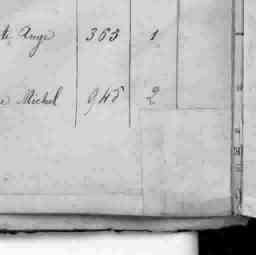 Ange 363 1
Michel 945 2